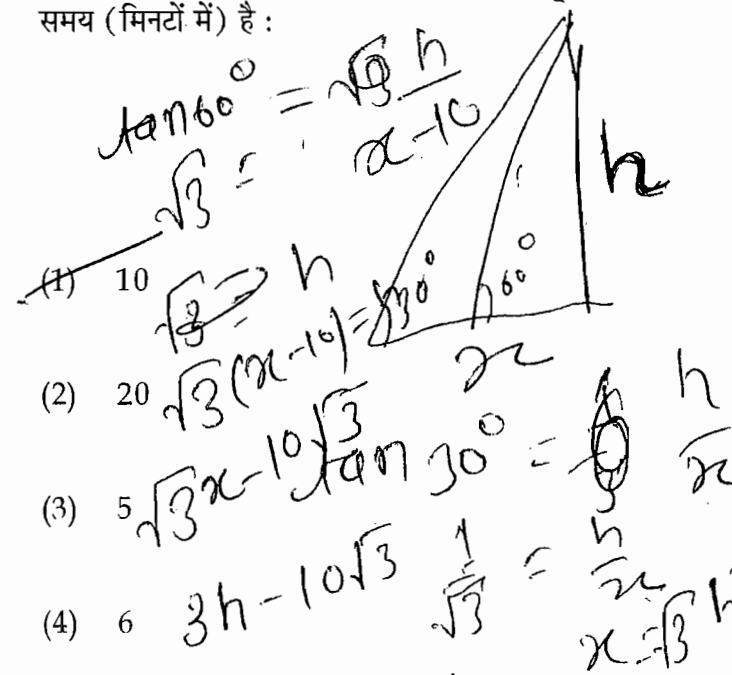 समय (मिनटों में) है :
tan60° = h
x-10
√3 =
(1) 10
h
30°
60°
h
x
(2) 20
√3(x-10) =
(3) 5
√3x-10√3
tan 30° = h
x
(4) 6
3h-10√3
1 = h
√3 x
x=√3 h